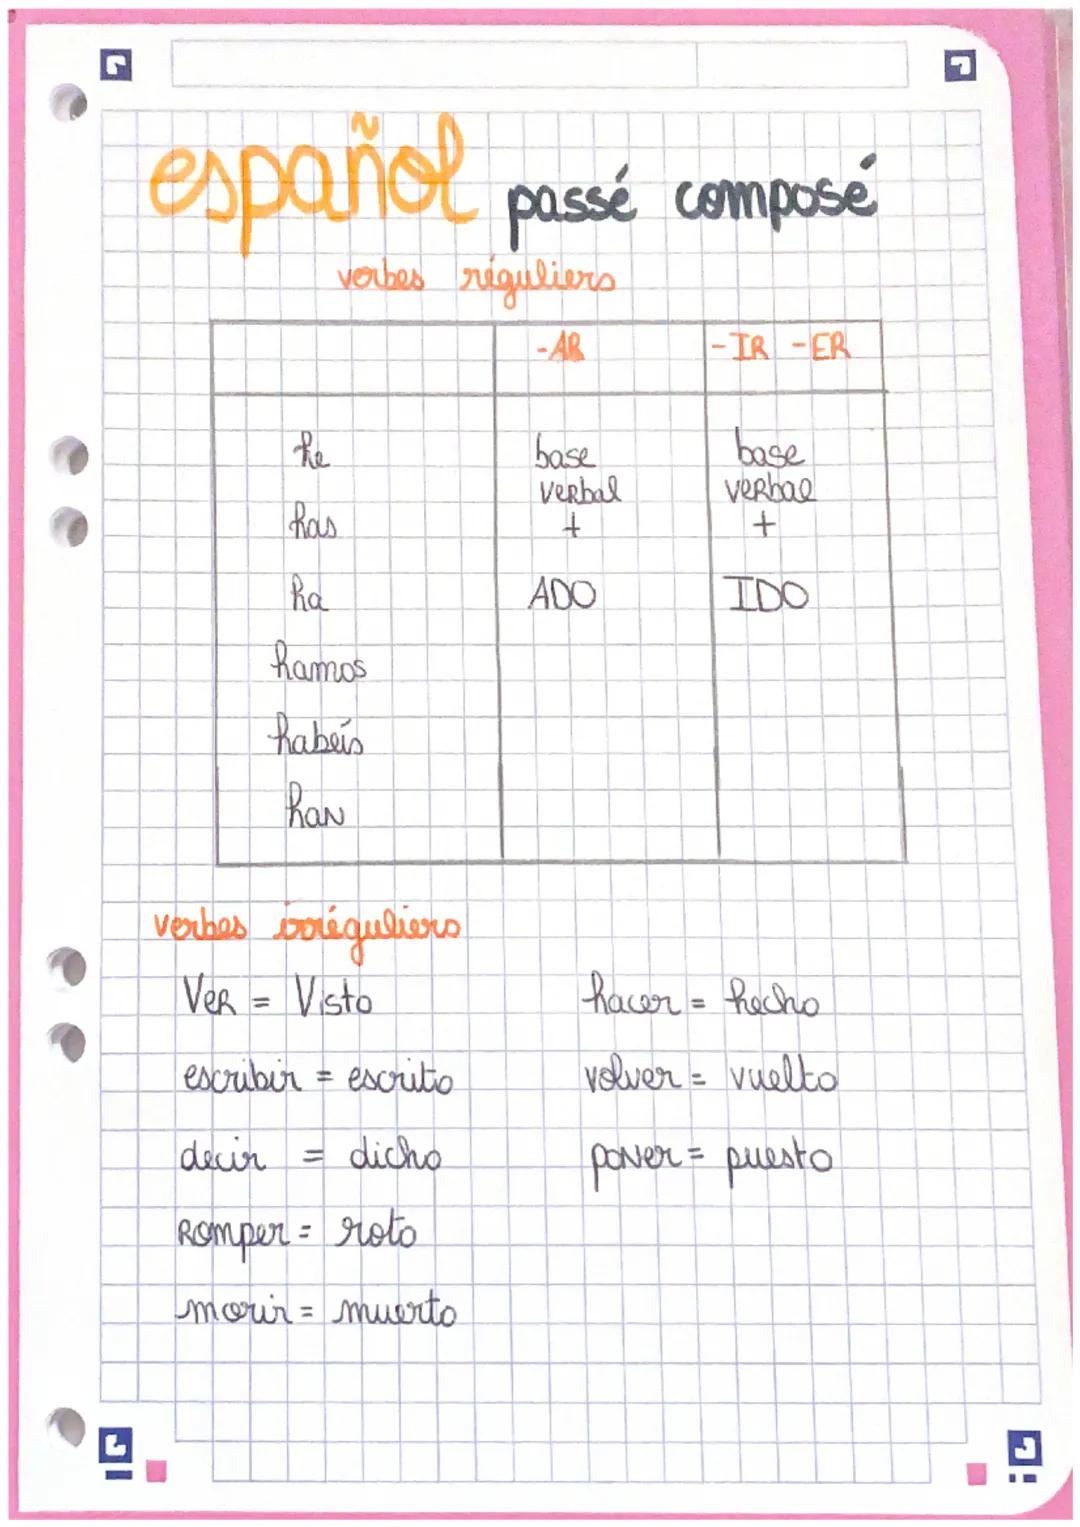 español passé composé
verbes réguliers
-AR -IR -ER
he base base
verbal verbal
has + +
ha ADO IDO
hamos
habeís
han
verbes irréguliers
Ver = Visto hacer = hecho
escribir = escrito volver = vuelto
decir = dicho poner = puesto
Romper = roto
morir = muerto